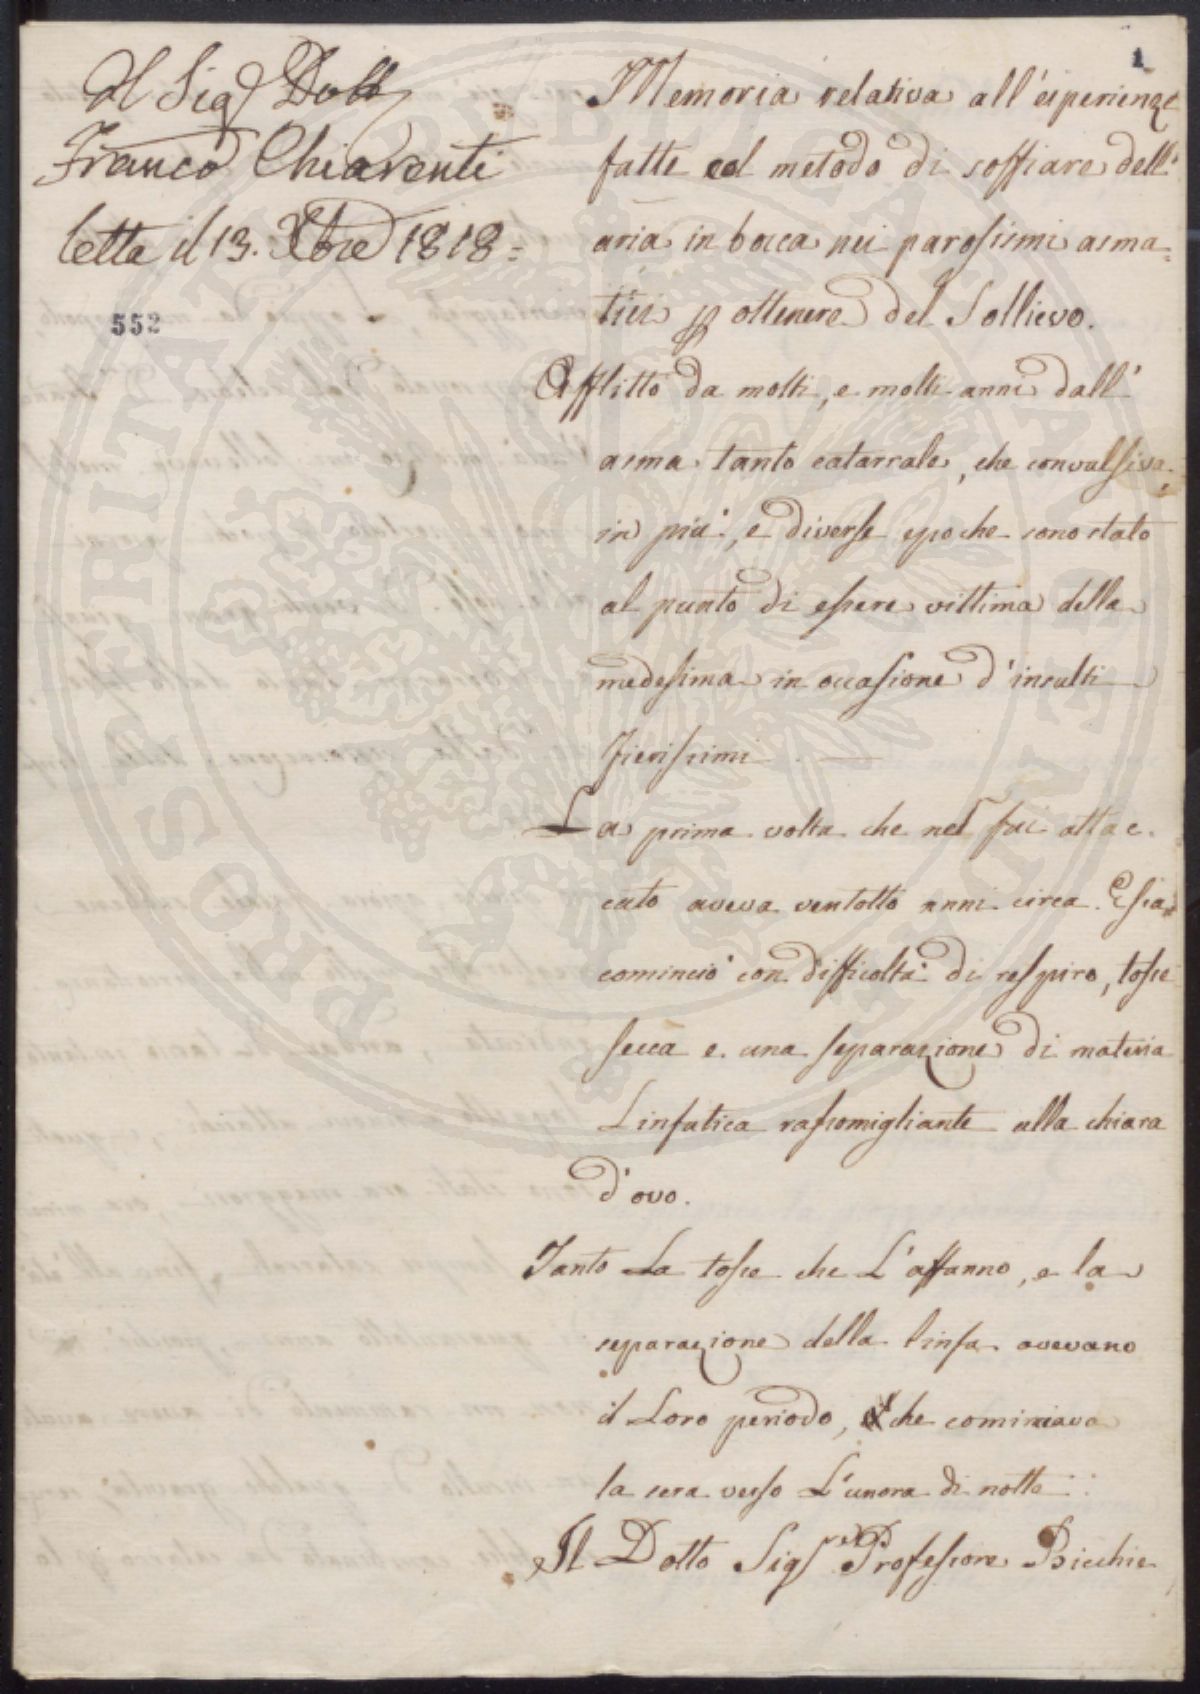 1
Il Sig.r Dott.
Franco Chiarenti
letta il 13. Xbre 1818=
552
Memoria relativa all'esperienze
fatte col metodo di soffiare dell'
aria in bocca nei parosismi asma=
tici p ottenere del Sollievo.
Afflitto da molti, e molti anni dall'
asma tanto catarrale, che convulsiva,
in più, e diverse epoche sono stato
al punto di essere vittima della
medesima in occasione d'insulti
fierissimi
La prima volta che nel fui attac.
cato aveva ventotto anni circa. Essa
cominciò con difficoltà di respiro, tosse
secca e una separazione di materia
Linfatica rassomigliante alla chiara
d'ovo.
Tanto La tosse che L'affanno, e la
separazione della linfa avevano
il Loro periodo, che cominciava
la sera verso L'unora di notte:
Il Dotto Sig.re Professore Bicchie